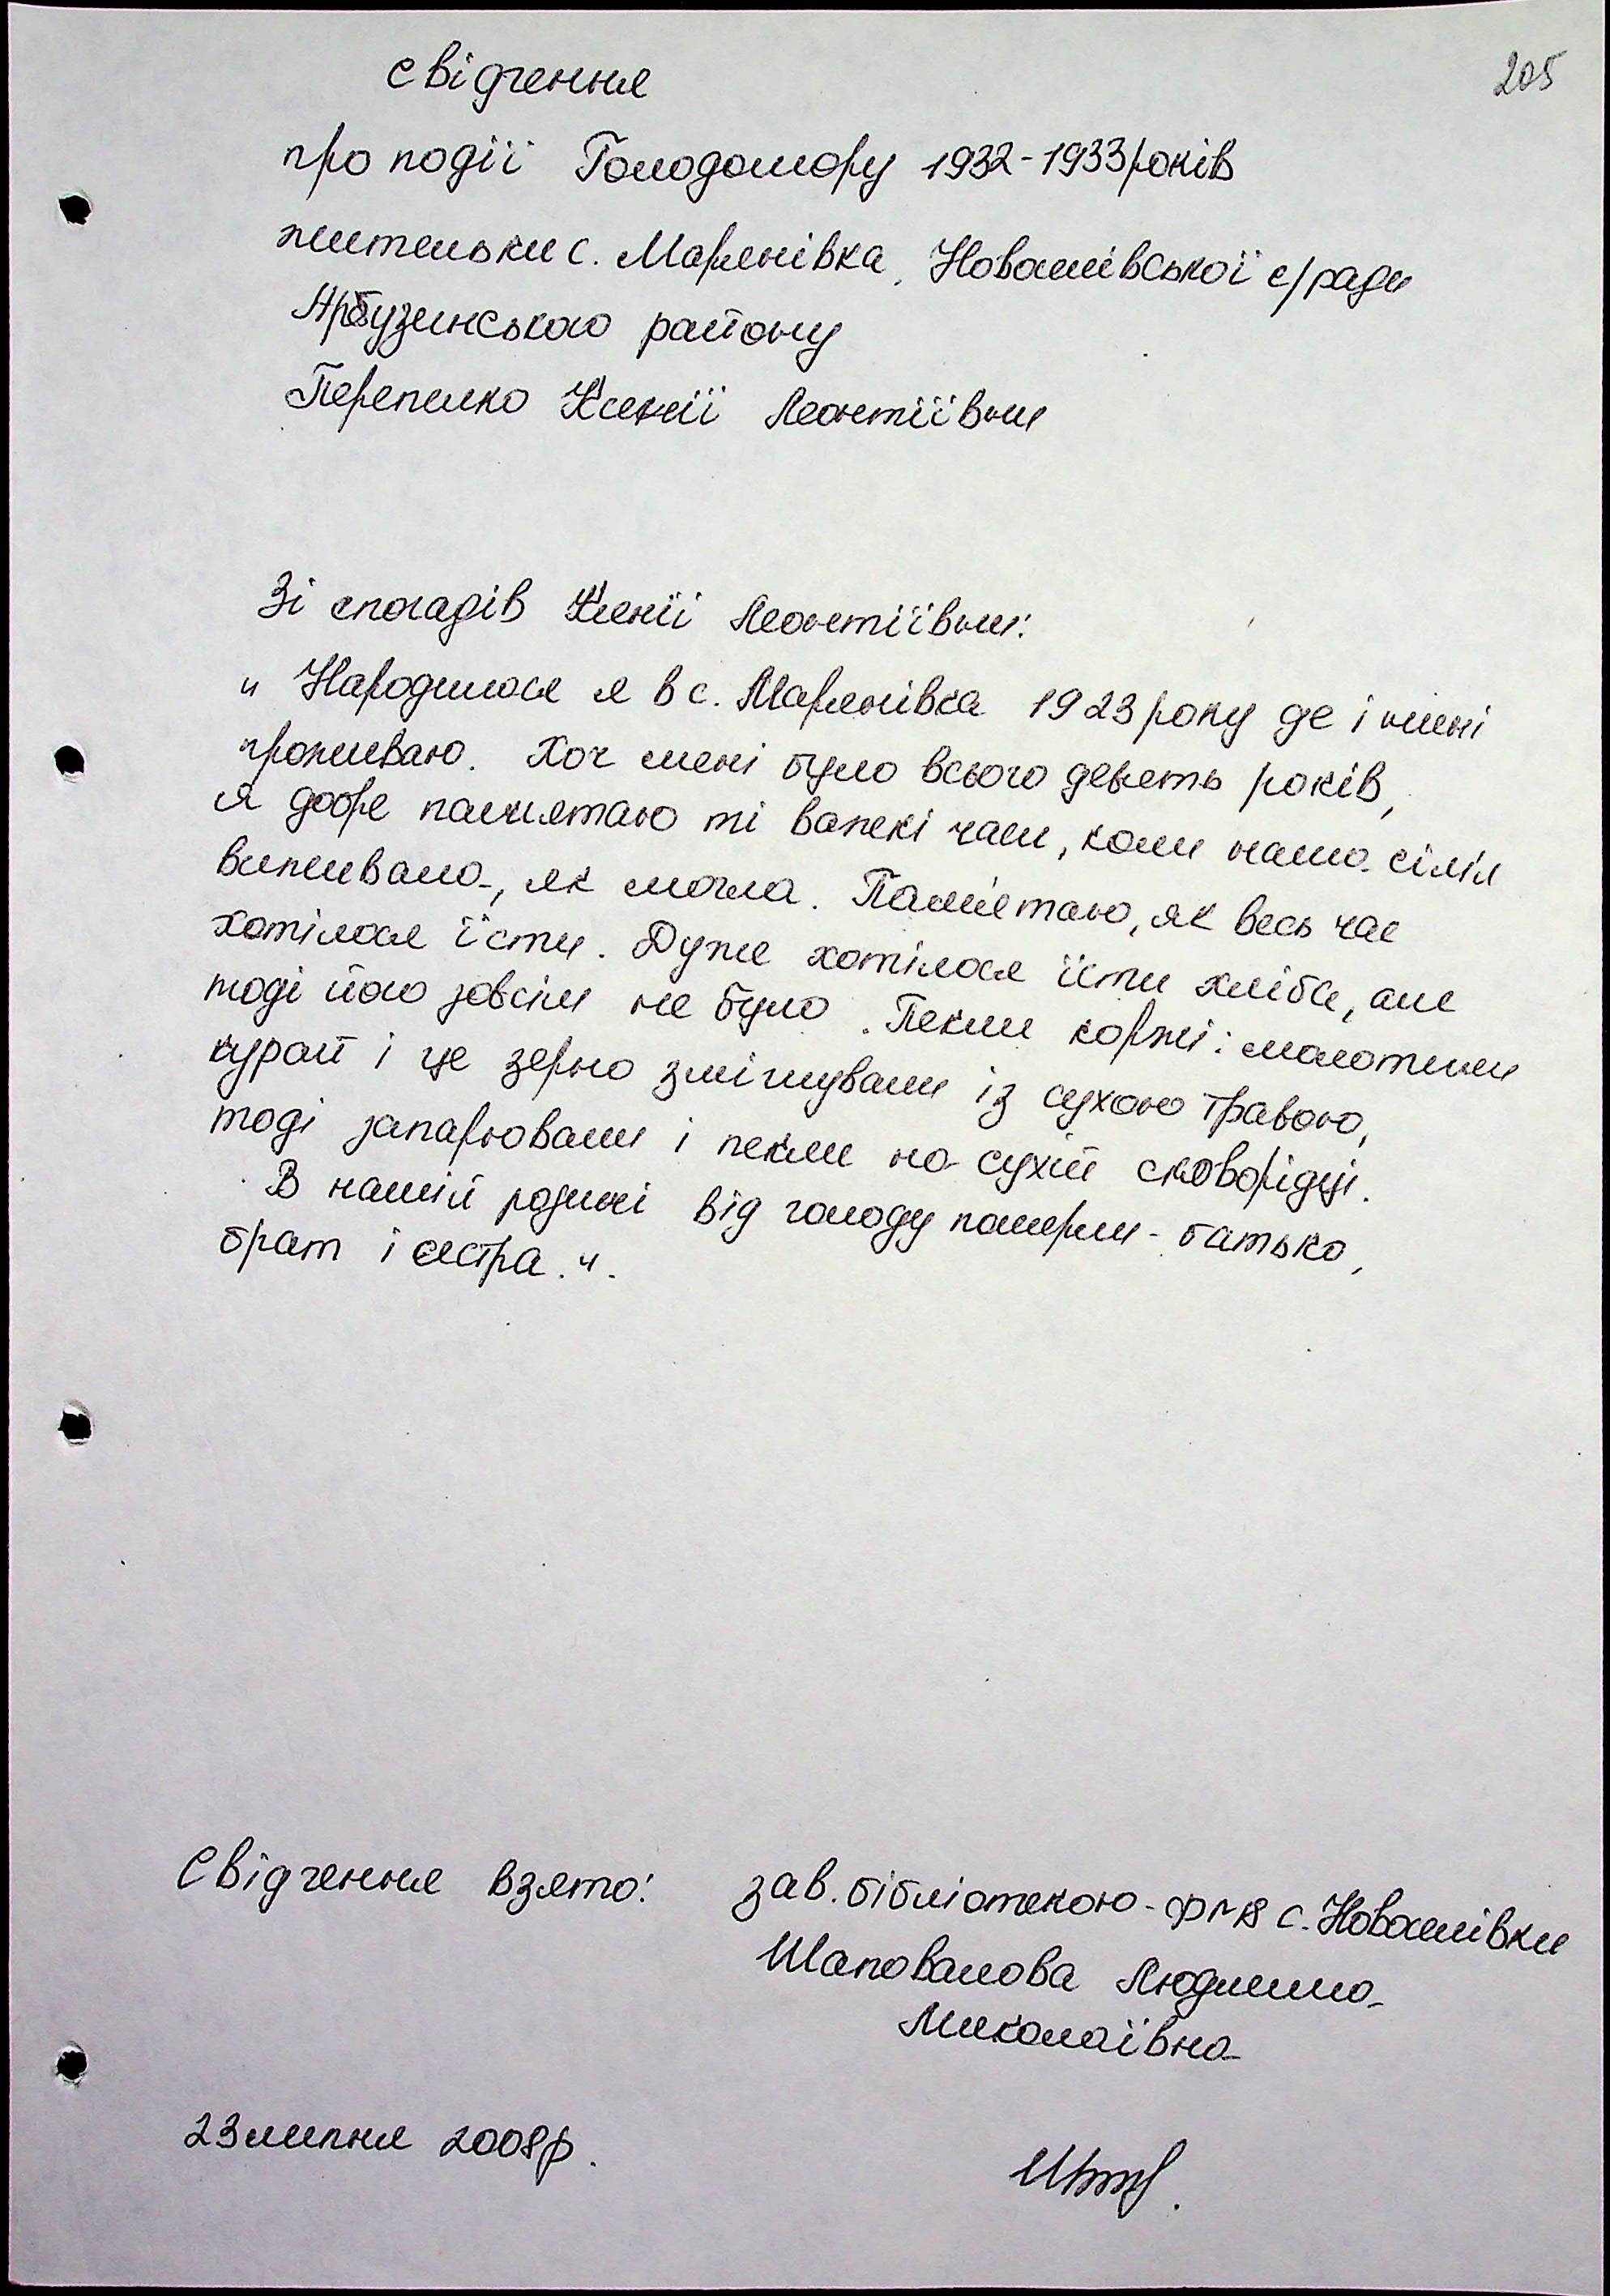 205
свідчення
про події Голодомору 1932-1933 років
жительки с. Мар'янівка, Новоселівської с/ради
Арбузинського району
Перепелко Ксенії Леонтіївни
Зі спогадів Ксенії Леонтіївни:
„ Народилася я в с. Мар'янівка 1923 року де і нині
проживаю. Хоч мені було всього девять років,
я добре памʼятаю ті важкі часи, коли наша сімʼя
виживала, як могла. Памʼятаю, як весь час
хотілося їсти. Дуже хотілося їсти хліба, але
тоді його зовсім не було. Пекли коржі: молотили
курай і це зерно змішували із сухою травою,
тоді запарювали і пекли на сухій сковорідці.
В нашій родині від голоду померли - батько,
брат і сестра.".
Свідчення взято: зав. бібліотекою-філія с. Новоселівки
Шаповалова Людмила
Миколаївна
23 липня 2008р.